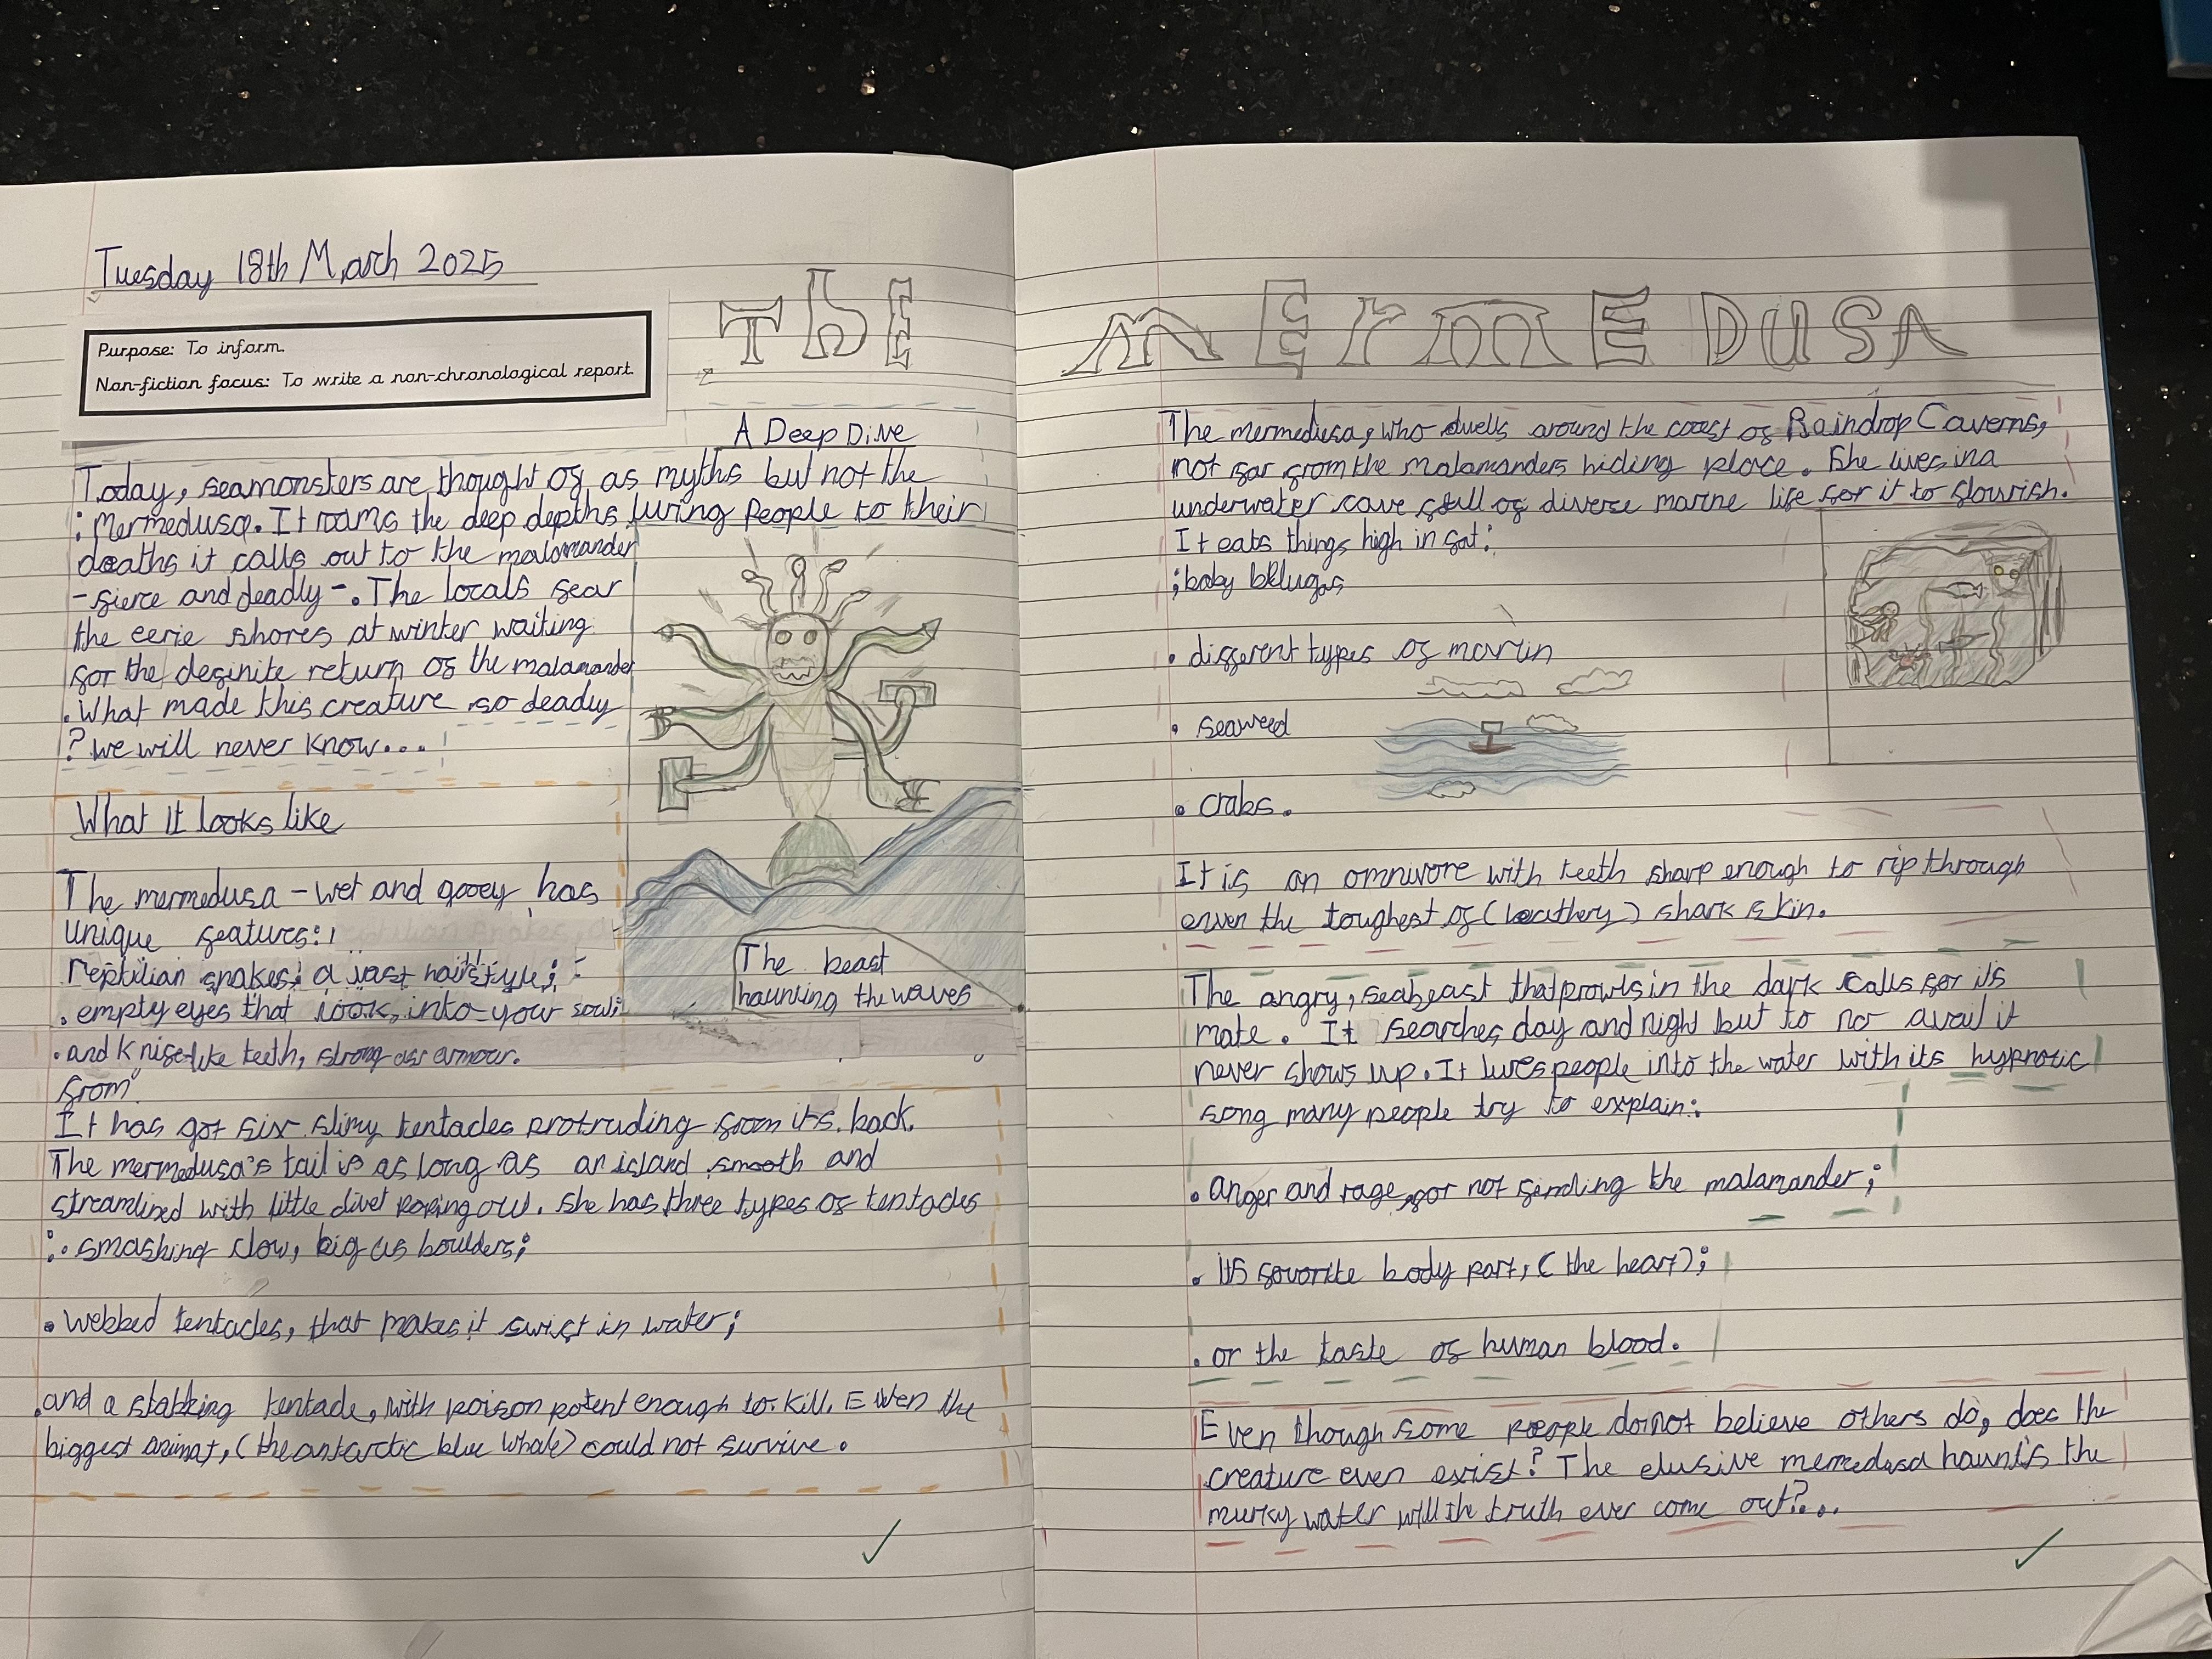 Tuesday 18th March 2025
Purpose: To inform.
Non-fiction focus: To write a non-chronological report.
THE MERMEDUSA
A Deep Dive
Today, seamonsters are thought of as myths but not the
: Mermedusa. It roams the deep depths luring people to their
deaths it calls out to the malamander
- fierce and deadly -. The locals fear
the eerie shores at winter waiting
for the definite return of the malamander
. What made this creature so deadly
? we will never know...
What it looks like
The mermedusa - wet and gooey has
unique features:
reptilian snakes; a vast hairstyle;
. empty eyes that look into your soul;
. and Knife-like teeth, strong as armour.
from
It has got six slimy tentacles protruding from its back.
The mermedusa's tail is as long as an island smooth and
streamlined with little divet poping out. She has three types of tentacles
: . smashing claw, big as boulders;
. webbed tentacles, that makes it swift in water;
. and a stabbing tentacle, with poison potent enough to kill. Even the
biggest animal, (the antarctic blue whale) could not survive.
The beast
haunting the waves
The mermedusa, who dwells around the coast of Raindrop Caverns,
not far from the malamanders hiding place. She lives in a
underwater cave full of diverse marine life for it to flourish.
It eats things high in fat:
; baby belugas
. different types of marlin
. seaweed
. crabs.
It is an omnivore with teeth sharp enough to rip through
even the toughest of (leathery) shark skin.
The angry, seabeast that prowls in the dark calls for its
mate. It searches day and night but to no avail it
never shows up. It lures people into the water with its hypnotic
song many people try to explain:
. anger and rage for not finding the malamander;
. its favorite body part, (the heart);
. or the taste of human blood.
Even though some people do not believe others do, does the
creature even exist? The elusive mermedusa haunts the
murky water will the truth ever come out?...